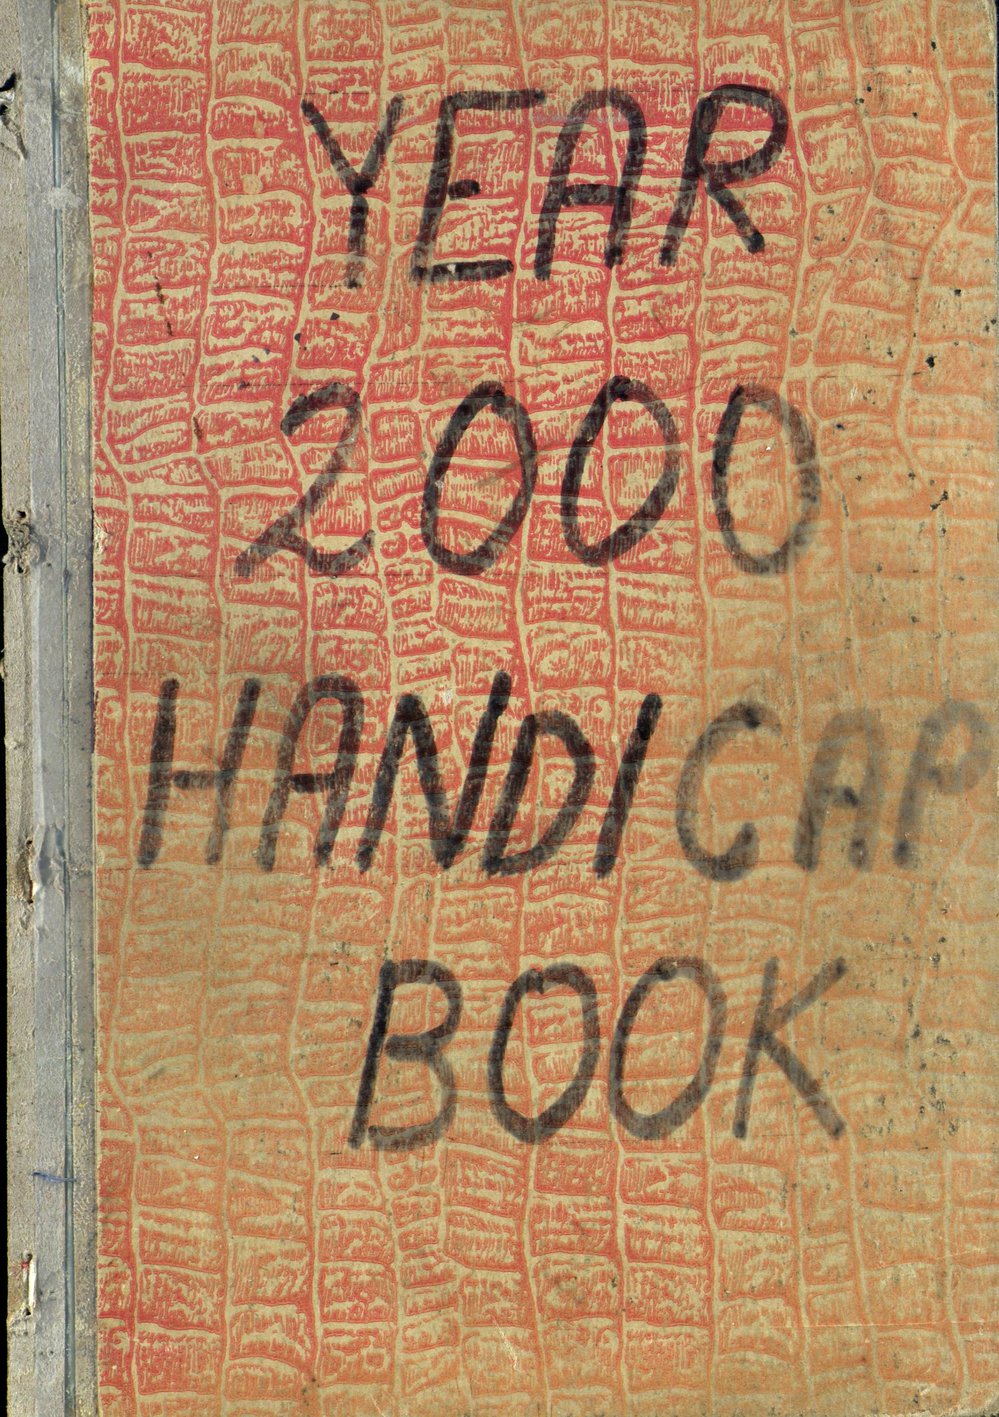 YEAR
2000
HANDICAP
BOOK